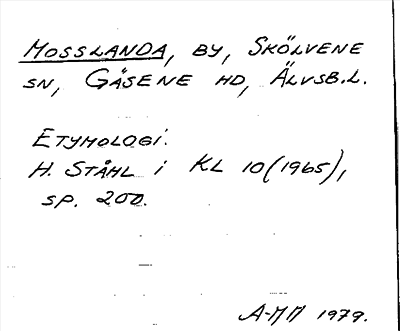 MOSSLANDA, BY, SKÖLVENE
SN, GÄSENE HD, ÄLVSB.L.
ETYMOLOGI:
H. STÅHL i KL 10(1965),
SP. 200.
A-MM 1979.